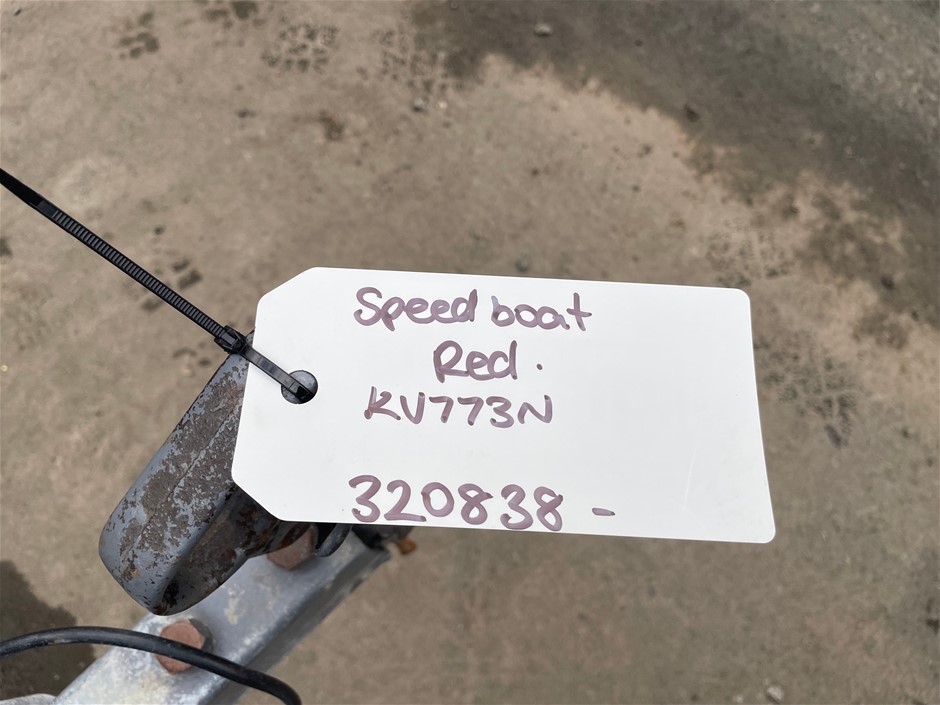 Speed boat
Red.
KV773N
320838 -